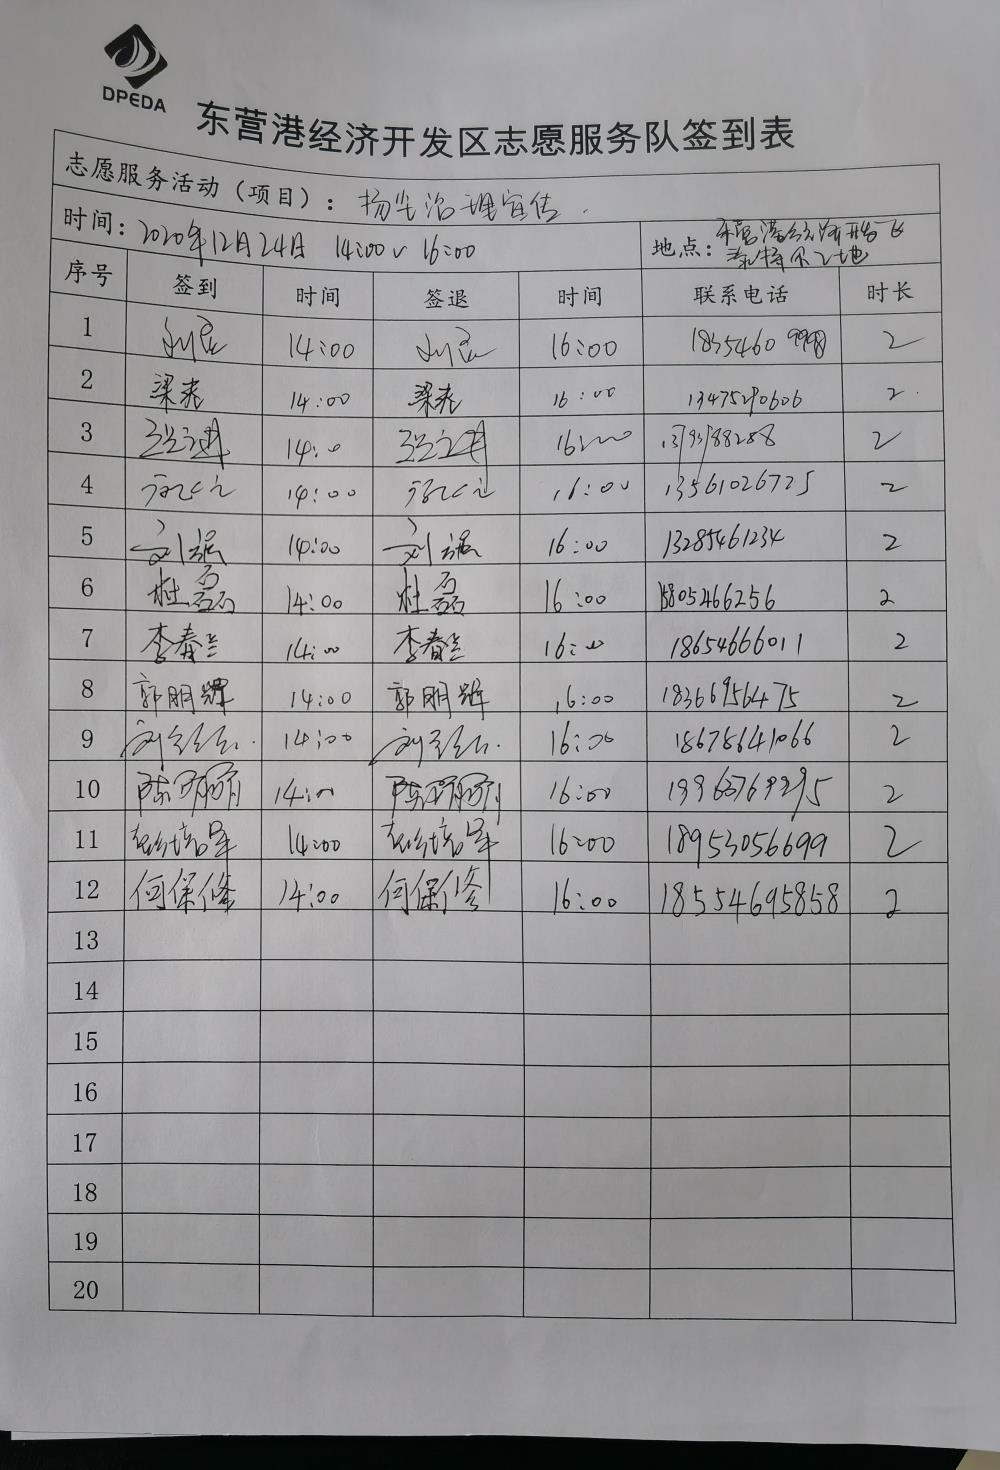 DPEDA
东营港经济开发区志愿服务队签到表
志愿服务活动（项目）：扬尘治理宣传.
时间：2020年12月24日 14:00~16:00 地点：东营港经济开发区
工地
序号 签到 时间 签退 时间 联系电话 时长
1 14:00 16:00 2
2 梁尧 14:00 梁尧 16:00 13475290606 2
3 14:00 16:00 2
4 14:00 16:00 13561026725 2
5 刘振 14:00 刘振 16:00 13285461234 2
6 杜磊 14:00 杜磊 16:00 15805466256 2
7 李春兰 14:00 李春兰 16:00 18654666011 2
8 郭明辉 14:00 郭明辉 16:00 18366956475 2
9 14:00 16:00 18678641066 2
10 陈丽丽 14:00 陈丽丽 16:00 2
11 14:00 16:00 18953056699 2
12 何保修 14:00 何保修 16:00 18554695858 2
13
14
15
16
17
18
19
20